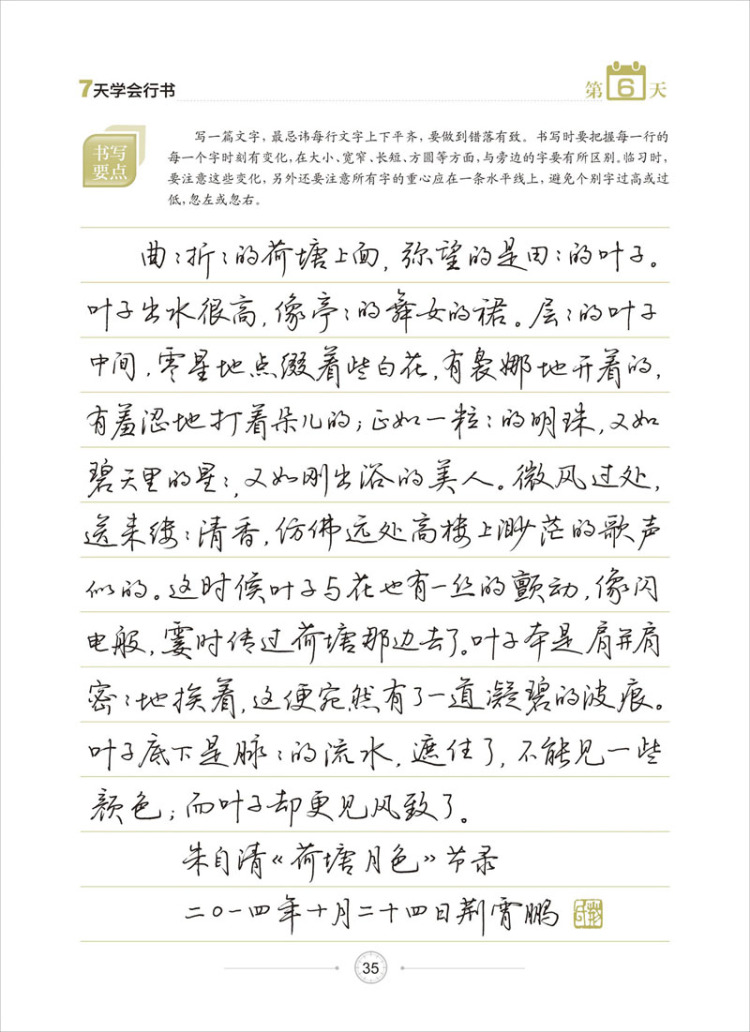 7天学会行书
第6天
书写
要点
写一篇文字，最忌讳每行文字上下平齐，要做到错落有致。书写时要把握每一行的
每一个字时刻有变化，在大小、宽窄、长短、方圆等方面，与旁边的字要有所区别。临习时，
要注意这些变化，另外还要注意所有字的重心应在一条水平线上，避免个别字过高或过
低，忽左或忽右。
曲:折:的荷塘上面，弥望的是田:的叶子。
叶子出水很高，像亭:的舞女的裙。层:的叶子
中间，零星地点缀着些白花，有袅娜地开着的，
有羞涩地打着朵儿的；正如一粒:的明珠，又如
碧天里的星:，又如刚出浴的美人。微风过处，
送来缕:清香，仿佛远处高楼上渺茫的歌声
似的。这时候叶子与花也有一丝的颤动，像闪
电般，霎时传过荷塘那边去了。叶子本是肩并肩
密:地挨着，这便宛然有了一道凝碧的波痕。
叶子底下是脉:的流水，遮住了，不能见一些
颜色；而叶子却更见风致了。
朱自清《荷塘月色》节录
二〇一四年十月二十四日荆霄鹏
35